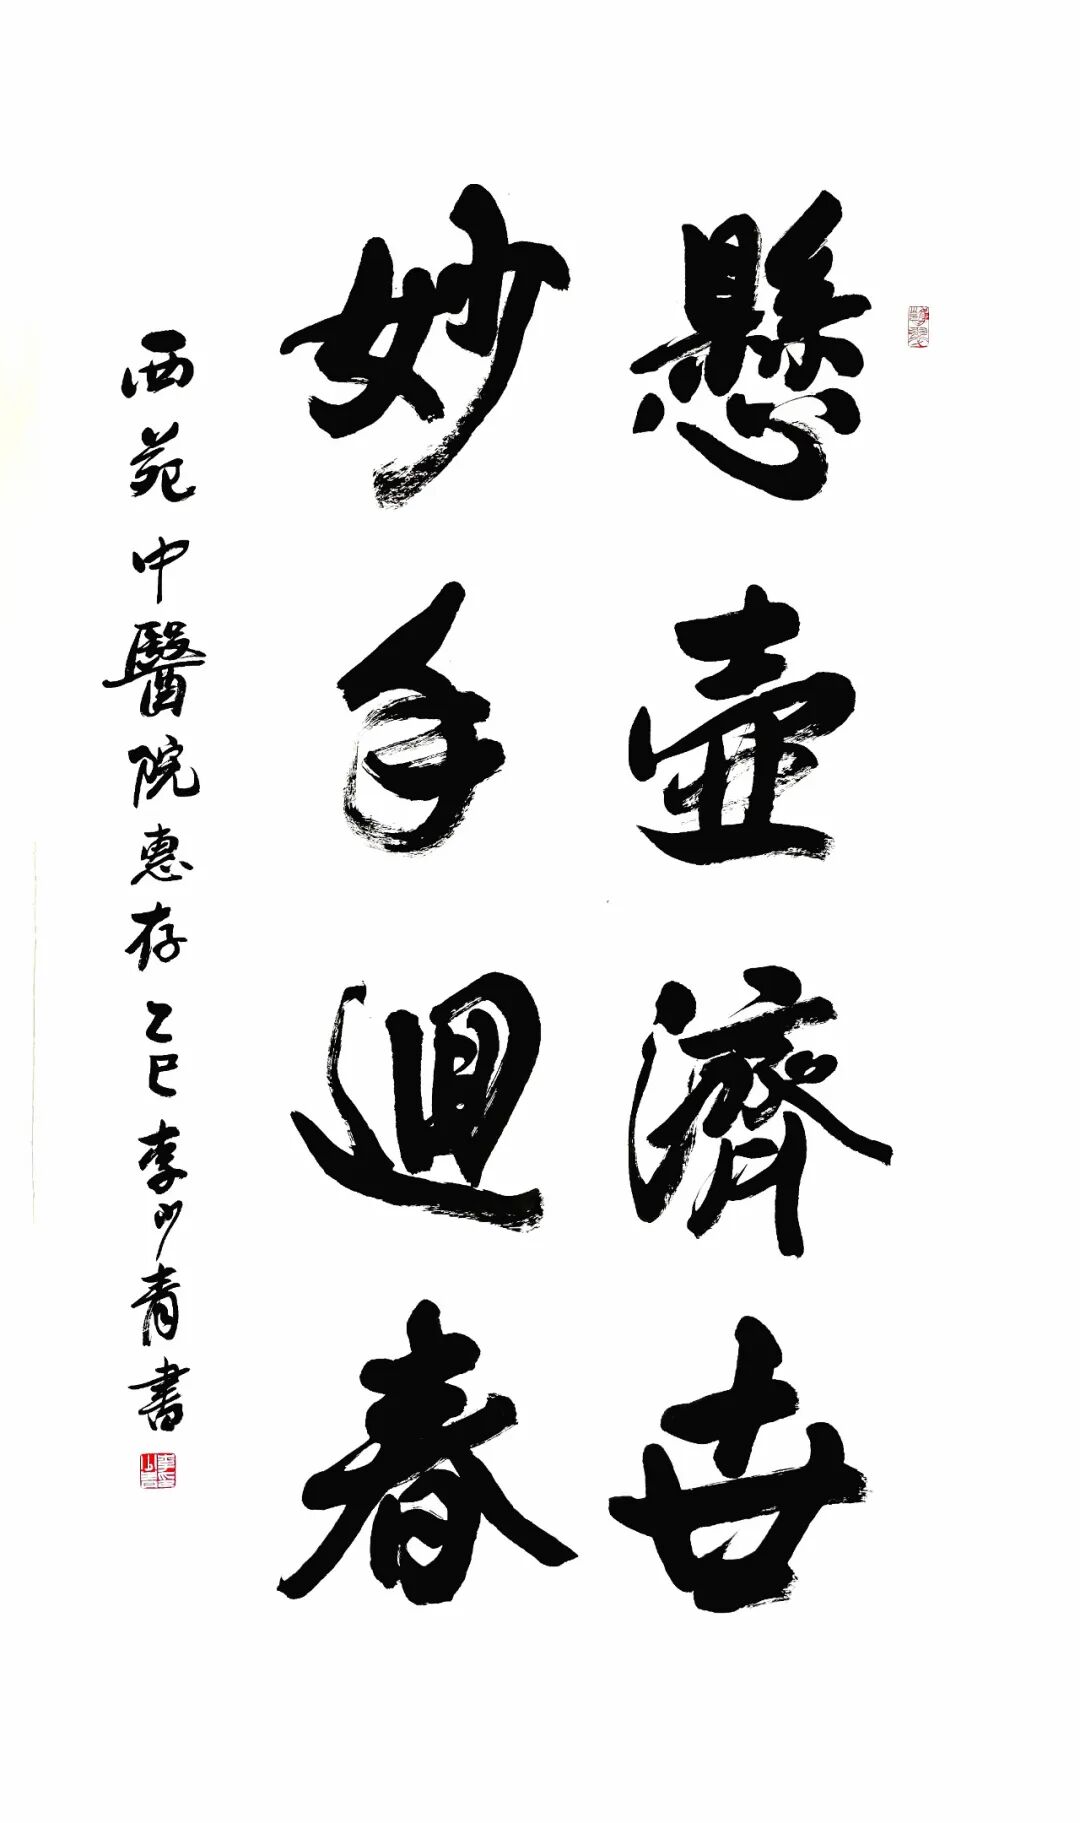 懸壺濟世
妙手迴春
西苑中醫院惠存乙巳李小青書